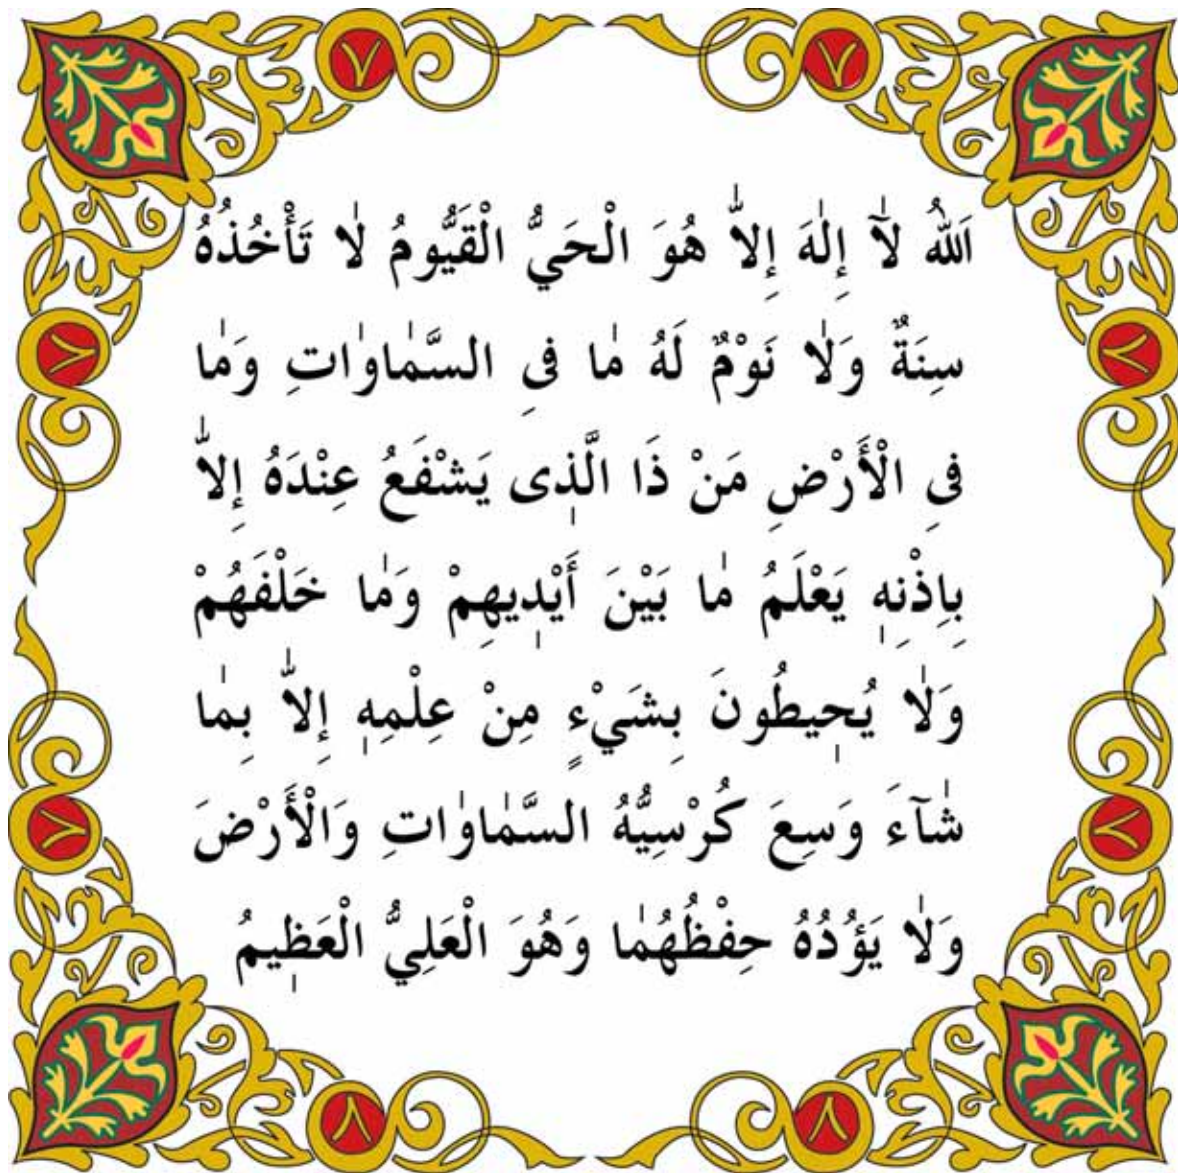 اَللهُ لَآ إِلٰهَ إِلاّٰ هُوَ الْحَيُّ الْقَيُّومُ لٰا تَأْخُذُهُ
سِنَةٌ وَلٰا نَوْمٌ لَهُ مٰا فىِ السَّمٰاوٰاتِ وَمٰا
فىِ الْأَرْضِ مَنْ ذَا الَّذٖى يَشْفَعُ عِنْدَهُ إِلاّٰ
بِاِذْنِهٖ يَعْلَمُ مٰا بَيْنَ أَيْدٖيهِمْ وَمٰا خَلْفَهُمْ
وَلٰا يُحٖيطُونَ بِشَيْءٍ مِنْ عِلْمِهٖ إِلاّٰ بِمٰا
شٰآءَ وَسِعَ كُرْسِيُّهُ السَّمٰاوٰاتِ وَالْأَرْضَ
وَلٰا يَؤُدُهُ حِفْظُهُمٰا وَهُوَ الْعَلِيُّ الْعَظٖيمُ